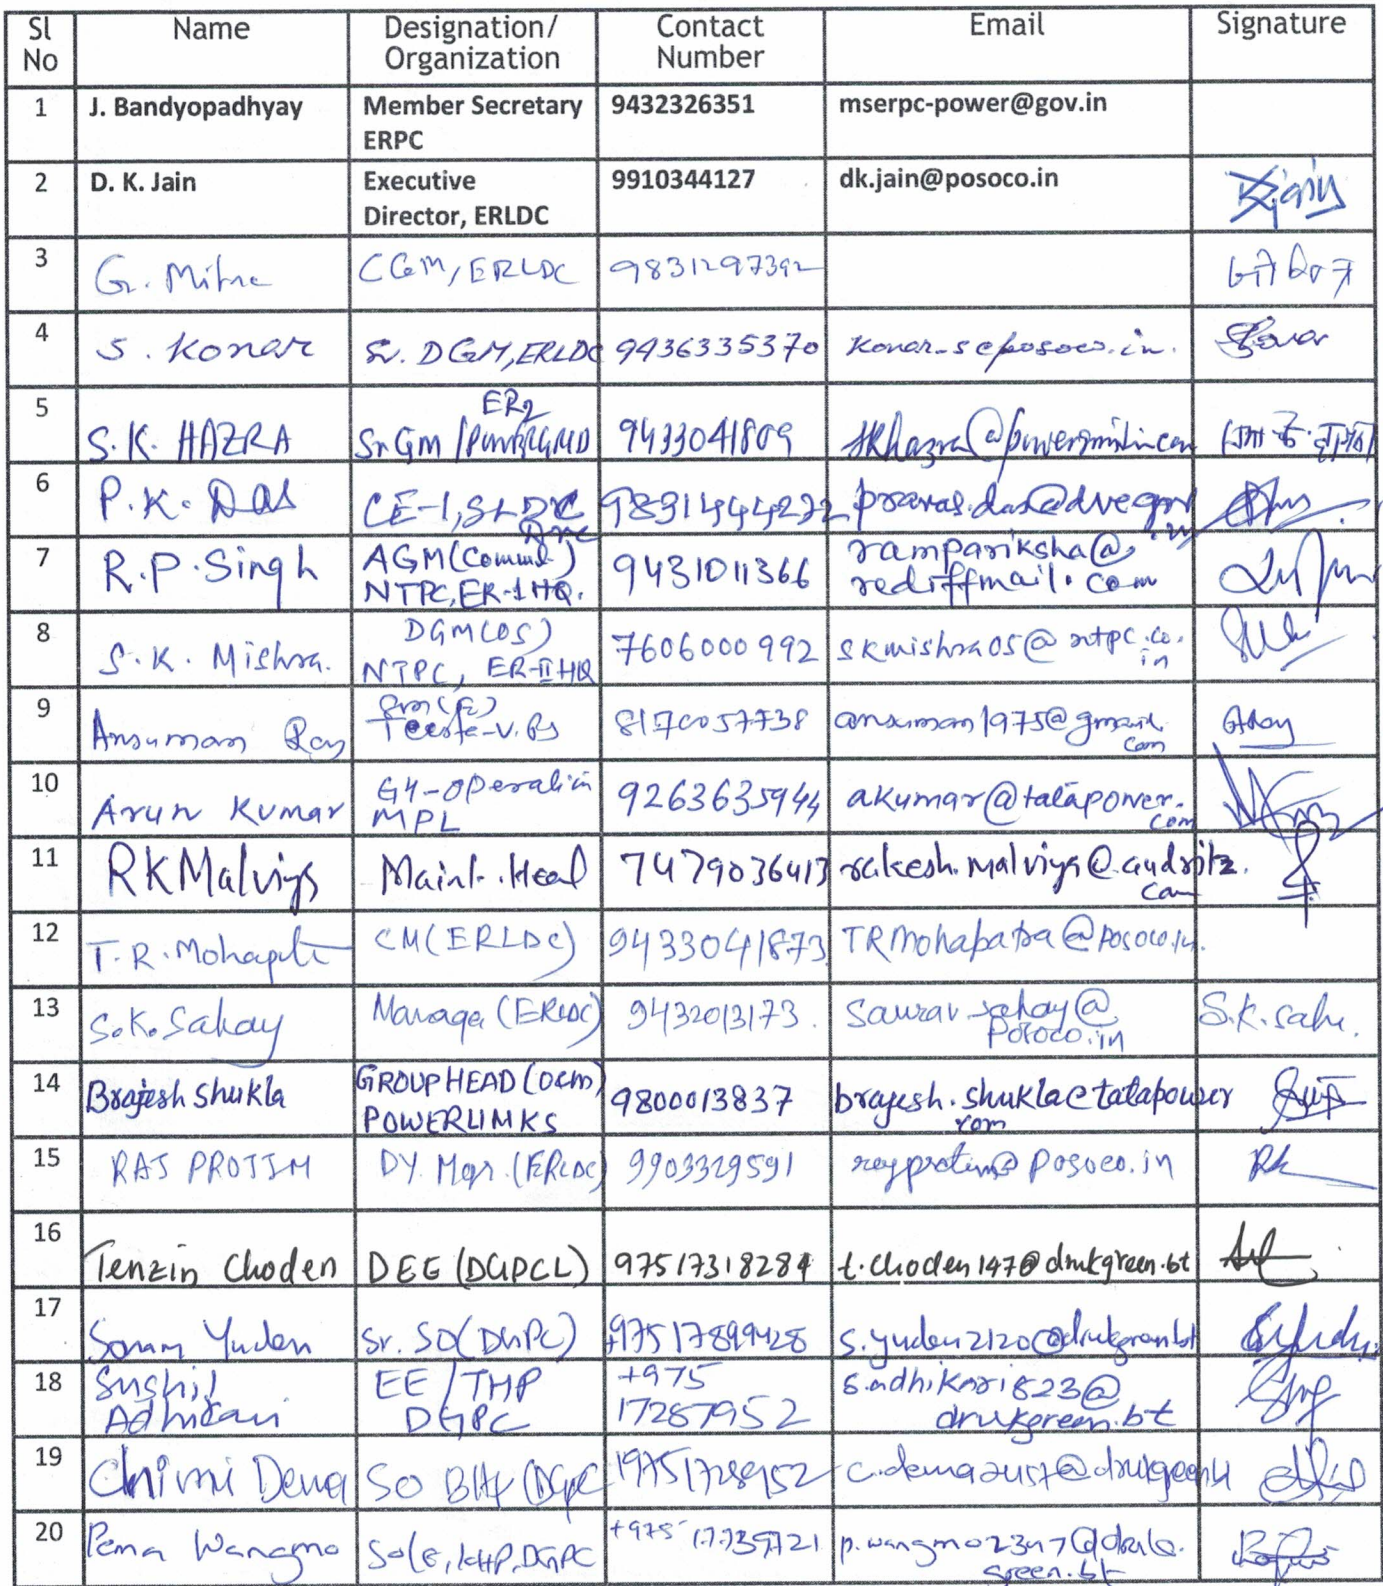 Sl No Name Designation/ Organization Contact Number Email Signature
1 J. Bandyopadhyay Member Secretary ERPC 9432326351 mserpc-power@gov.in
2 D. K. Jain Executive Director, ERLDC 9910344127 dk.jain@posoco.in
3 G. Mitra CGM, ERLDC 9831297392
4 S. Konar Sr. DGM, ERLDC 9436335370 konar_s@posoco.in.
5 S.K. HAZRA Sr GM / POWERGRID ER2 9433041809
6 P.K. Das CE-1, SLDC DVC 9831444232 pravas.das@dvc.gov.in
7 R.P. Singh AGM (Comml.) NTPC, ER-1 HQ. 9431011366 rampariksha@rediffmail.com
8 S.K. Mishra. DGM (OS) NTPC, ER-II HQ 7606000992 skmishra05@ntpc.co.in
9 Ansuman Ray Teesta-V. PS 8170057738 ansuman1975@gmail.com
10 Arun Kumar MPL 9263635944 akumar@tatapower.com
11 RK Malviya Maint. Head 7479036413 rakesh.malviya@andritz.com
12 T.R. Mohapatra CM (ERLDC) 9433041873 TRMohapatra@posoco.in.
13 S.K. Sahay Manager (ERLDC) 9432013173. saurav.sahay@posoco.in
14 Brajesh Shukla GROUP HEAD (O&M) POWERLINKS 9800013837 brajesh.shukla@tatapower.com
15 RAJ PROTIM DY. Mgr. (ERLDC) 9903329591 rayprotim@posoco.in
16 Tenzin Choden DEE (DGPCL) 97517318284 t.choden147@drukgreen.bt
17 Sonam Yuden Sr. SO (DGPC) +97517899428 s.yuden2120@drukgreen.bt
18 Sushil Adhikari EE/THP DGPC +975 17287952 s.adhikari823@drukgreen.bt
19 Chimi Dema SO
20 Pema Wangmo KHP, DGPC +975 p.wangmo2347@drukgreen.bt